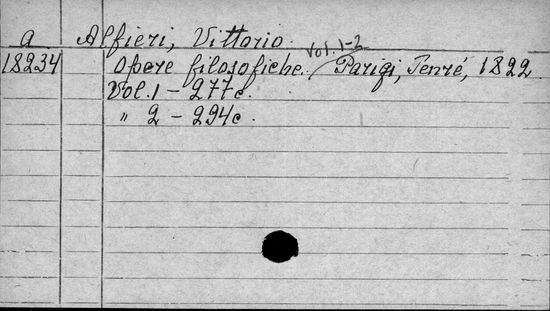 a Alfieri, Vittorio.
18234 Opere filosofiche. Vol. 1-2 Parigi, Tenré, 1822.
Vol. 1 - 277c.
" 2 - 294c.